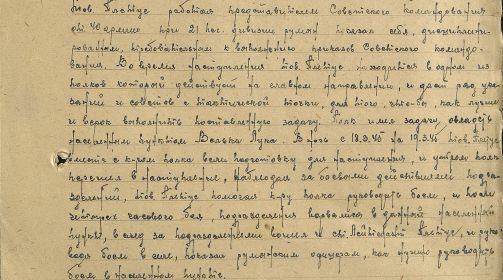 тов. работая представителем Советского командования
от 40 армии при 21 пех. дивизии румын показал себя, дисциплини-
рованным, требовательным к выполнению приказов Советского командо-
вания. Во время наступления тов. находился в одном из
полков который действует на главном направлении, и дал ряд ука-
заний и советов с тактической точки, для того, что-бы, как лучше
и верок выполнить поставленную задачу. Полк имел задачу, овладеть
населенным пунктом Велька Лука. В ночь 18.3.45 на 19.3.45 тов.
вместе с к-ром полка вели подготовку для наступления, и утром полк
перешел в наступление, наблюдая за боевыми действиями подра-
зделений, тов. помогал к-ру полка руководить боем, и после
четырех часового боя, подразделения ворвались в данный населенный
пункт, в след за подразделениями вошел и ст. Лейтенант и руко-
водя боем в селе, показал румынским офицерам, как лучше руководить
боем в населенном пункте.